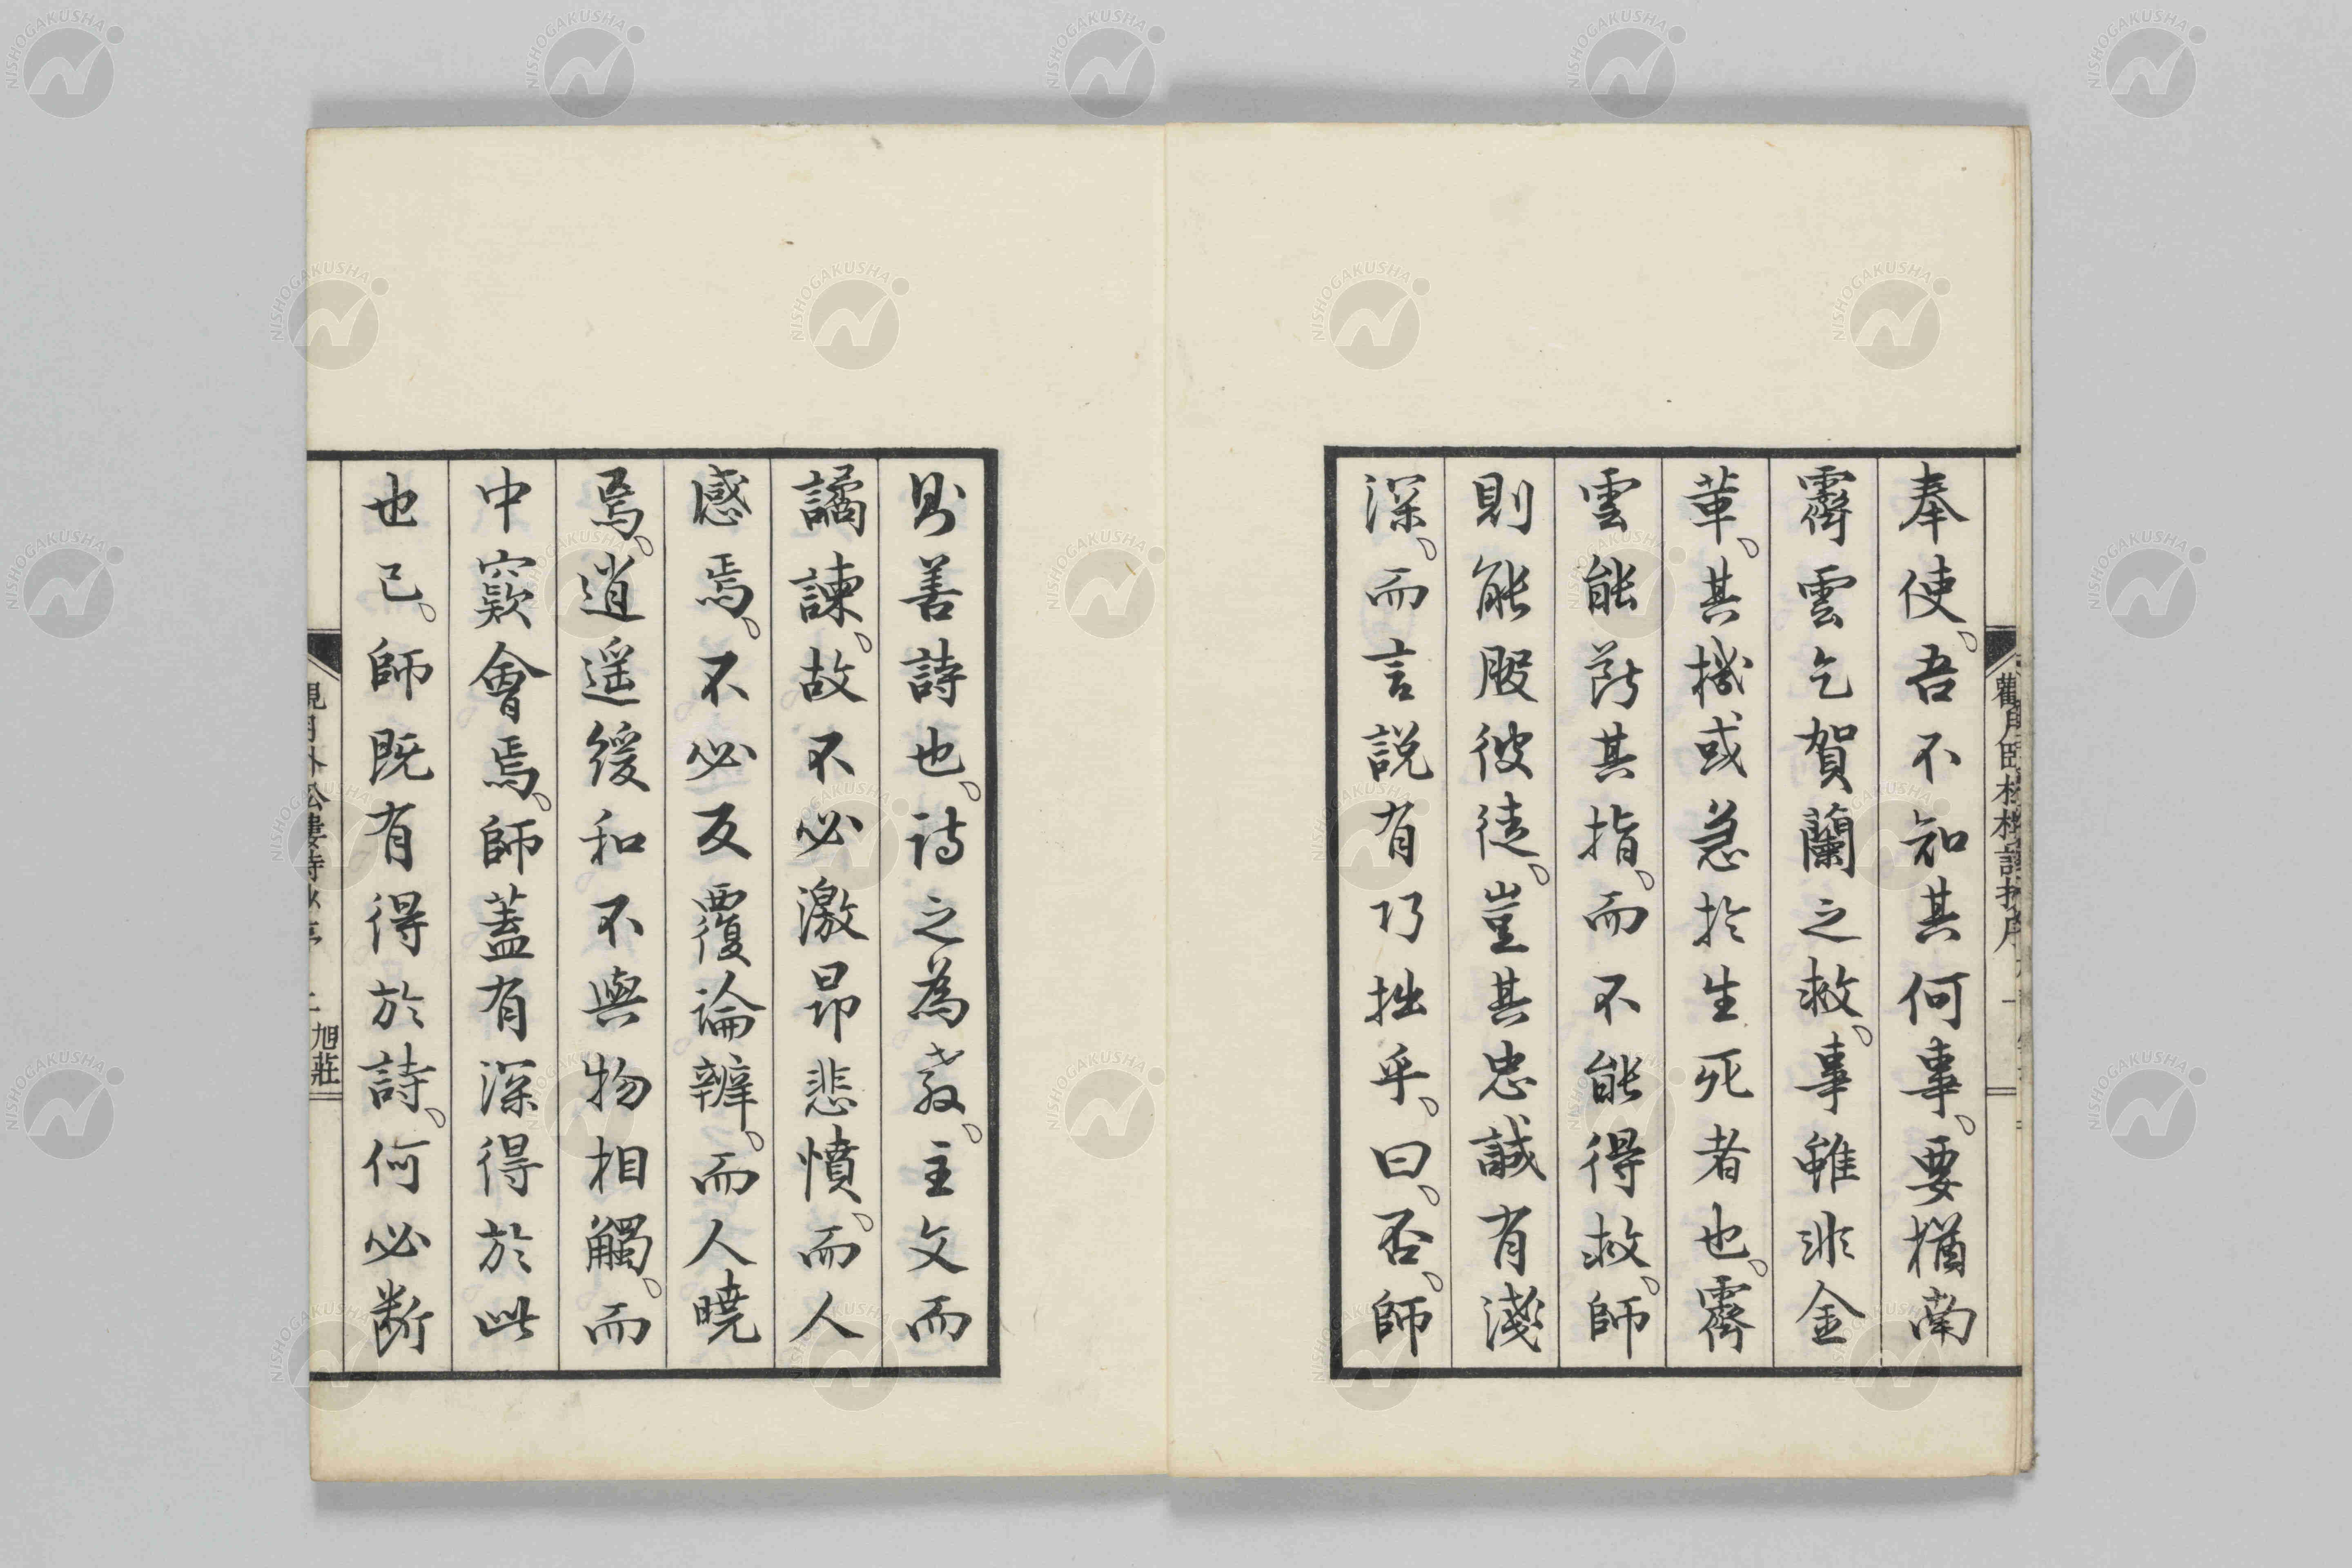 奉使。吾不知其何事。要猶南
霽雲乞賀蘭之救。事雖非金
革。其機或急於生死者也。霽
雲能斷其指。而不能得救。師
則能服彼徒。豈其忠誠有淺
深。而言説有巧拙乎。曰。否。師
則善詩也。詩之為教。主文而
譎諫。故不必激昂悲憤。而人
感焉。不必反覆論辨。而人曉
焉。逍遥緩和不與物相觸。而
中窾會焉。師蓋有深得於此
也已。師既有得於詩。何必斷
旭莊
NISHOGAKUSHA